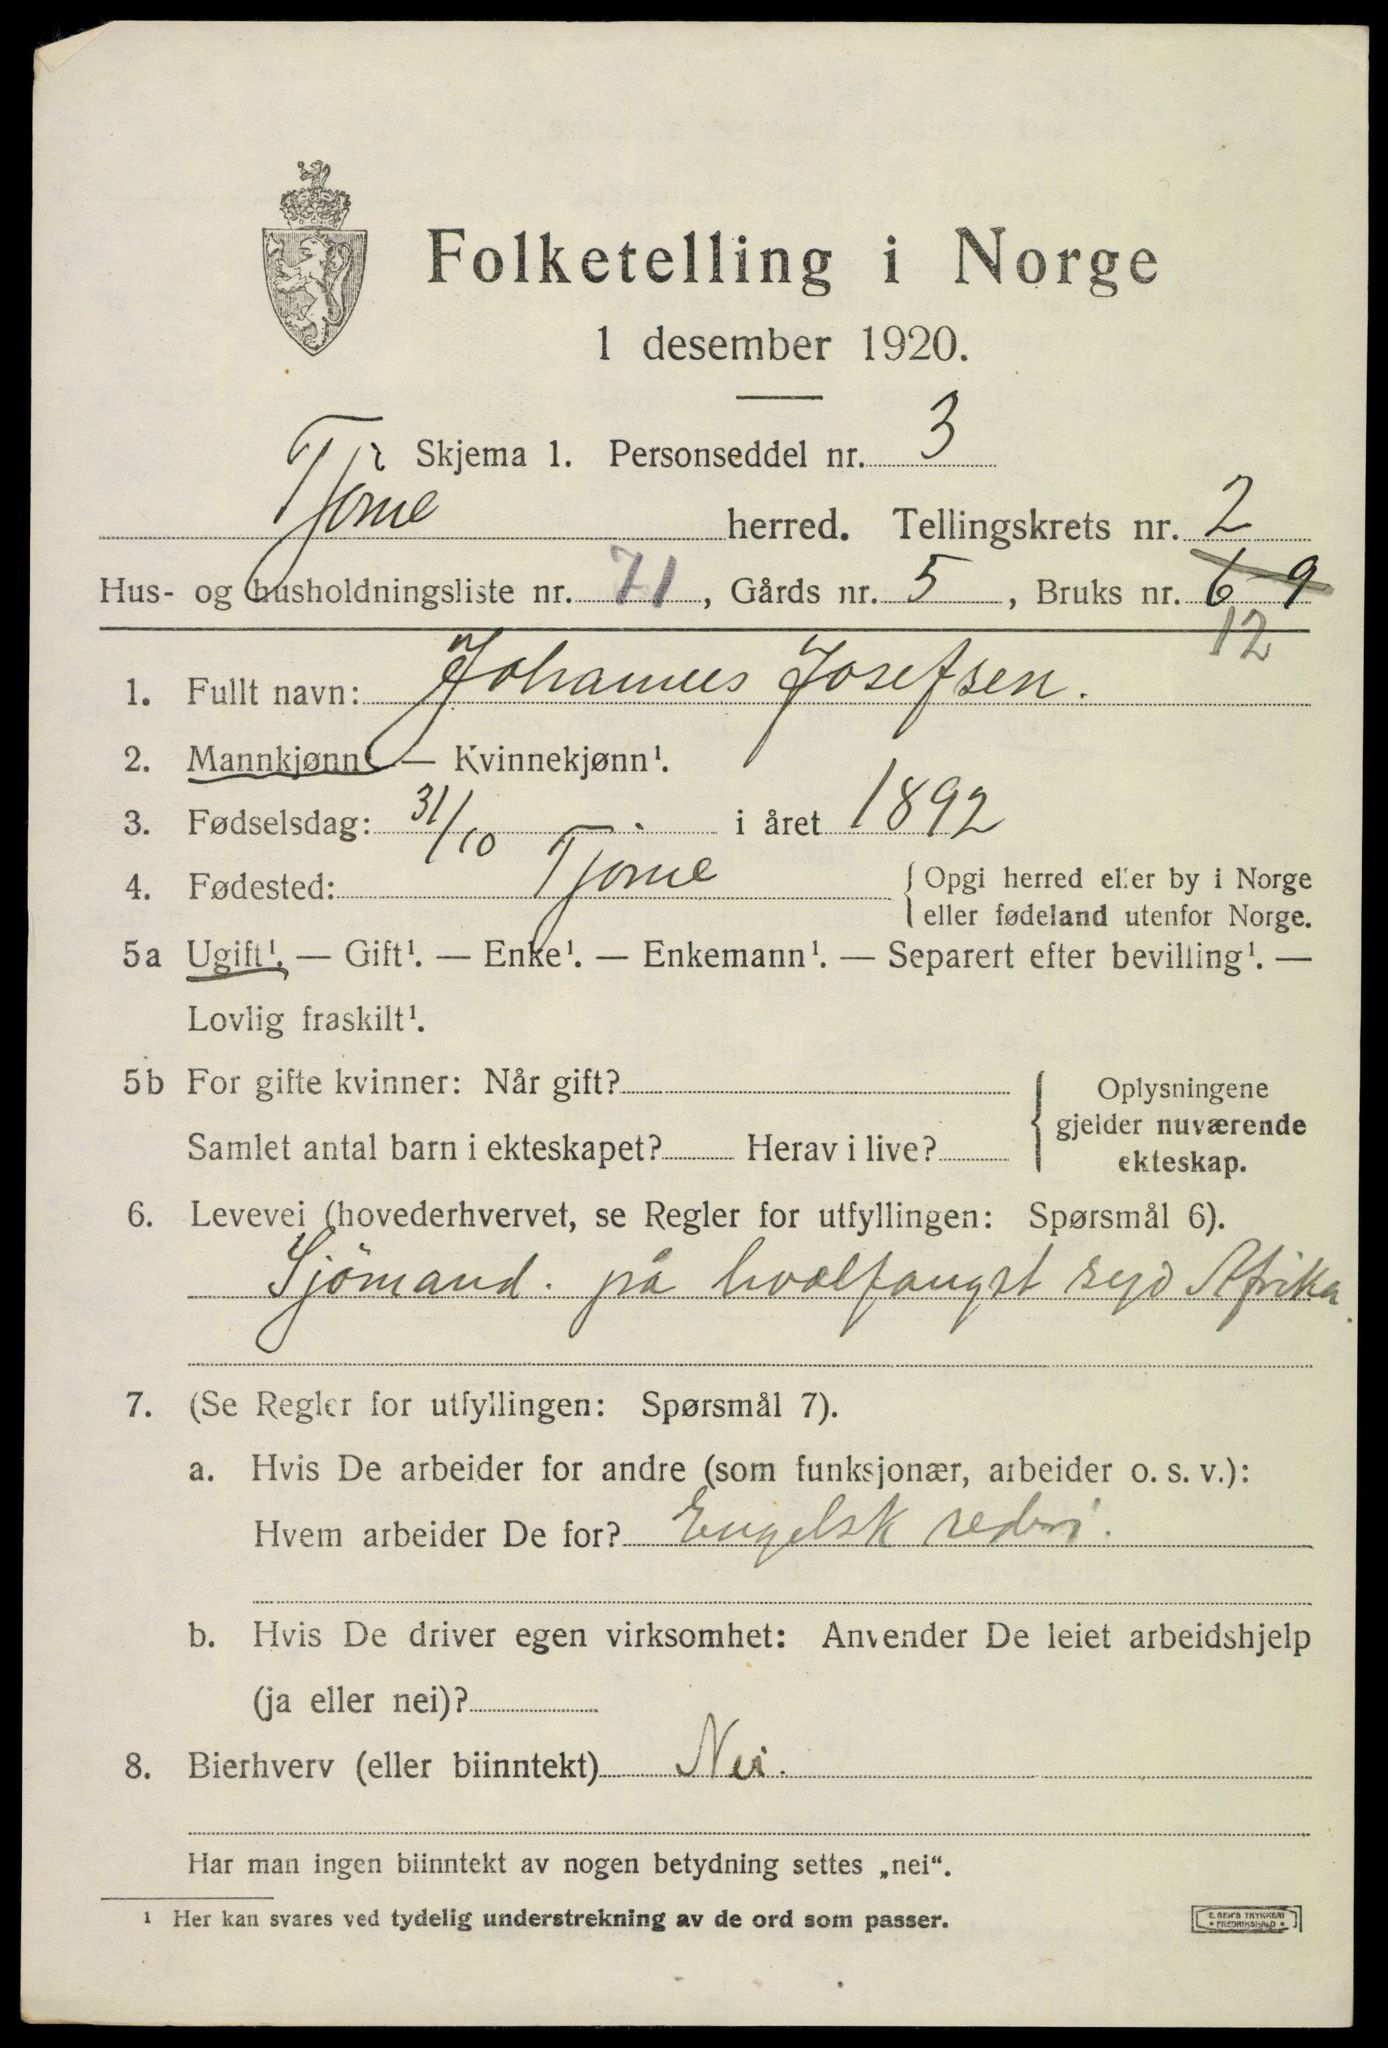 Folketelling i Norge
1 desember 1920.
Skjema 1. Personseddel nr. 3
Tjöme herred. Tellingskrets nr. 2
Hus- og husholdningsliste nr. 71, Gårds nr. 5, Bruks nr. 6 9
12
1. Fullt navn: Johannes Josefsen.
2. Mannkjønn¹ — Kvinnekjønn¹.
3. Fødselsdag: 31/10 i året 1892
4. Fødested: Tjöme { Opgi herred eller by i Norge
eller fødeland utenfor Norge.
5a Ugift¹. — Gift¹. — Enke¹. — Enkemann¹. — Separert efter bevilling¹. —
Lovlig fraskilt¹.
5b For gifte kvinner: Når gift? { Oplysningene
gjelder nuværende
ekteskap.
Samlet antal barn i ekteskapet? Herav i live?
6. Levevei (hovederhvervet, se Regler for utfyllingen: Spørsmål 6).
Sjömand. på hvalfangst syd Afrika.
7. (Se Regler for utfyllingen: Spørsmål 7).
a. Hvis De arbeider for andre (som funksjonær, arbeider o. s. v.):
Hvem arbeider De for? Engelsk rederi.
b. Hvis De driver egen virksomhet: Anvender De leiet arbeidshjelp
(ja eller nei)?
8. Bierhverv (eller biinntekt) Nei.
Har man ingen biinntekt av nogen betydning settes „nei“.
¹ Her kan svares ved tydelig understrekning av de ord som passer.
E. SEM'S TRYKKERI
• FREDRIKSHALD •